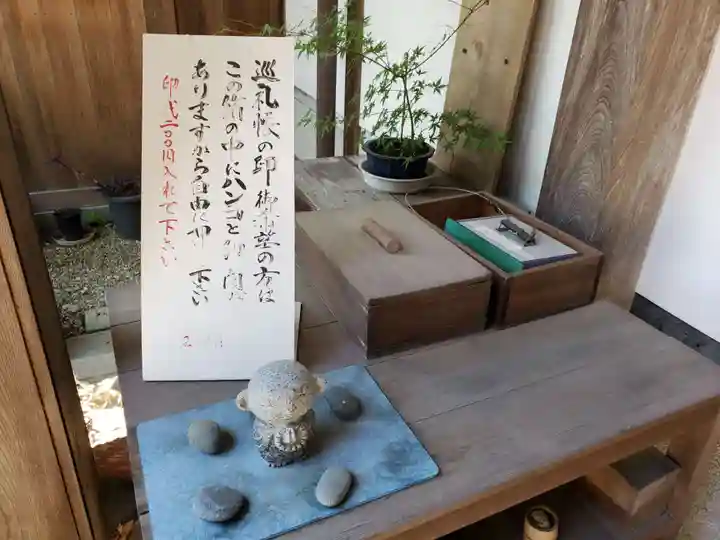 巡礼帳の印御希望の方は
この箱の中にハンコと印肉が
ありますから自由に押して下さい
印代二〇〇円入れて下さい